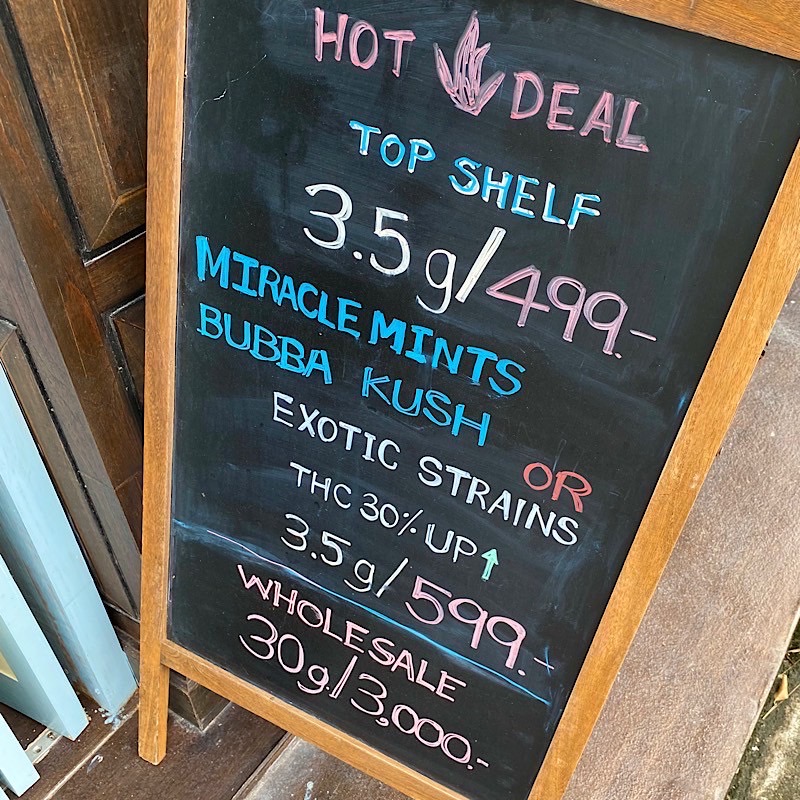 HOT DEAL
TOP SHELF
3.5g/499.-
MIRACLE MINTS
BUBBA KUSH
OR
EXOTIC STRAINS
THC 30% UP↑
3.5g/599.-
WHOLESALE
30g./3,000.-